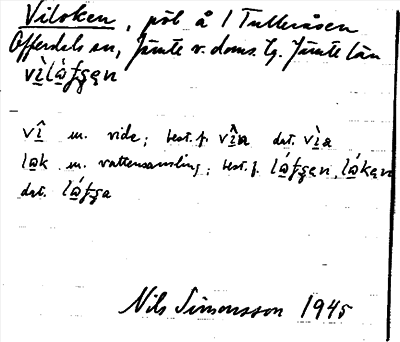 Viloken, pöl å / Tulleråsen
Offerdals sn, Jämte n. doms. tg. Jämte län
vìlá̱ƒs̨ęn
vî m. vide; best. f. vîa dat. vìa
la̱k m. vattensamling; best. f. lá̱ƒs̨ęn, lá̱kęn
dat. lá̱ƒs̨a
Nils Simonsson 1945